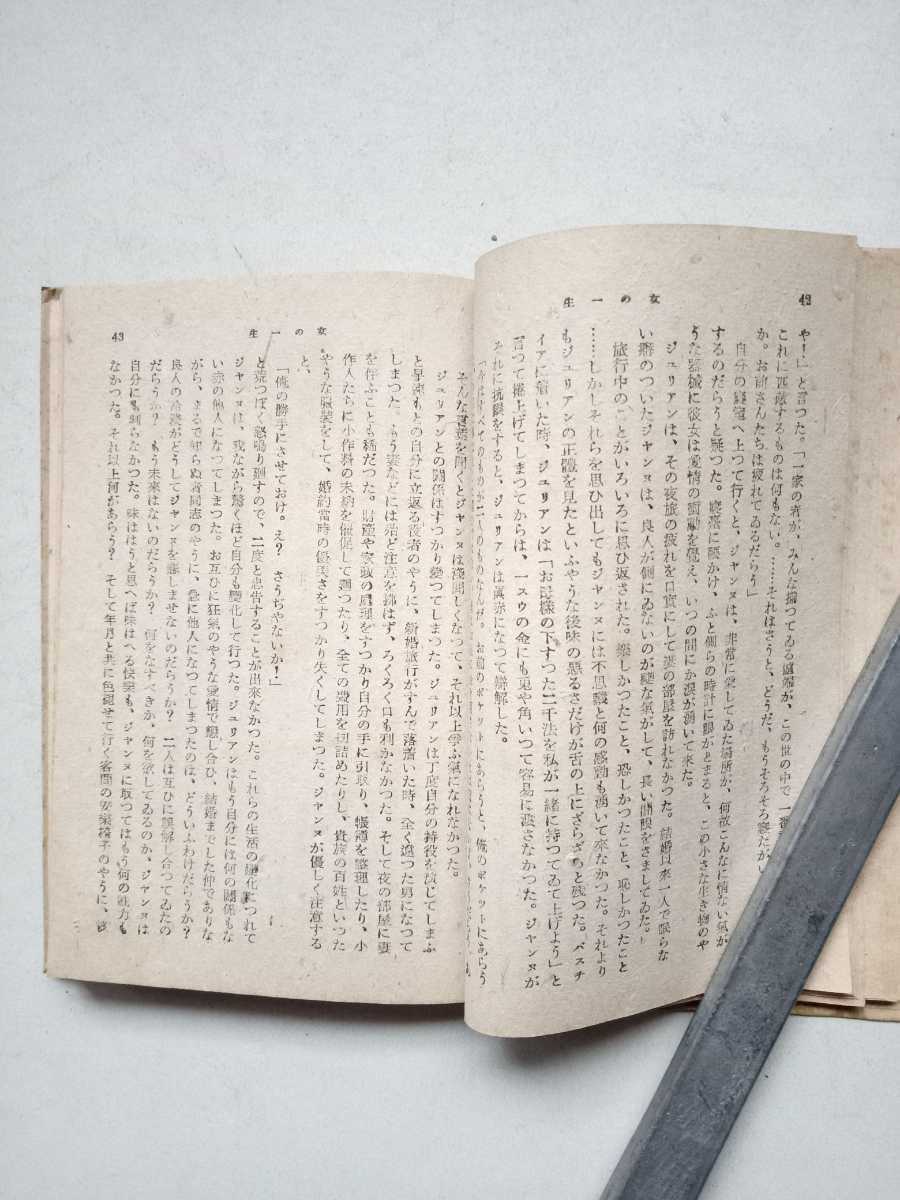 女の一生
42
や!」と言つた。「一家の者が、みんな揃つてゐる爐端が、この世の中で一番
これに匹敵するものは何もない。……それはさうと、どうだ、もうそろそろ寝たが
か。お前さんたちは疲れてゐるだらう」
自分の寝室へ上つて行くと、ジャンヌは、非常に愛してゐた場所が、何故こんなに情ない氣が
するのだらうと疑つた。寝臺に腰かけ、ふと側らの時計に眼がとまると、この小さな生き物のや
うな器械に彼女は愛情の衝動を覺え、いつの間にか涙が湧いて來た。
ジュリアンは、その夜旅の疲れを口實にして妻の部屋を訪れなかつた。結婚以來一人で眠らな
い癖のついたジャンヌは、良人が側にゐないのが變な氣がして、長い間眼をさましてゐた。
旅行中のことがいろいろに思ひ返された。樂しかつたこと、恐しかつたこと、恥しかつたこと
……しかしそれらを思ひ出してもジャンヌには不思議と何の感動も湧いて來なかつた。それより
もジュリアンの正體を見たといふやうな後味の惡るさだけが舌の上にざらざらと殘つた。バスチ
イアに着いた時、ジュリアンは「お母樣の下すつた二千法を私が一緒に持つてゐて上げよう」と
言つて捲上げてしまつてからは、一スウの金にも兎や角いつて容易に渡さなかつた。ジャンヌが
それに抗議をすると、ジュリアンは眞赤になつて辯解した。
すべてのものが二人のものなんだ。お前のポケットにあらうと、俺のポケットにあらう
女の一生
43
そんな言葉を聞くとジャンヌは淺間しくなつて、それ以上爭ふ氣になれなかつた。
ジュリアンとの關係はすつかり變つてしまつた。ジュリアンは丁度自分の持役を演じてしまふ
と早速もとの自分に立返る役者のやうに、新婚旅行がすんで落着いた時、全く違つた男になつて
しまつた。もう妻などには殆ど注意を拂はず、ろくろく口も利かなかつた。そして夜の部屋に妻
を伴ふことも稀だつた。財産や家政の處理をすつかり自分の手に引取り、帳簿を整理したり、小
作人たちに小作料の未納を催促して廻つたり、全ての費用を切詰めたりし、貴族の百姓といつた
やうな服裝をして、婚約當時の優美さをすつかり失くしてしまつた。ジャンヌが優しく注意する
と、
「俺の勝手にさせておけ。え? さうぢやないか!」
と荒つぽく怒鳴り廻すので、二度と忠告することが出來なかつた。これらの生活の變化につれて
ジャンヌは、我ながら驚くほど自分も變化して行つた。ジュリアンはもう自分には何の關係もな
い赤の他人になつてしまつた。お互ひに狂氣のやうな愛情で戀し合ひ、結婚までした仲でありな
がら、まるで知らぬ者同志のやうに、急に他人になつてしまつたのは、どういふわけだらうか?
良人の冷淡がどうしてジャンヌを悲しませないのだらうか? 二人は互ひに誤解し合つてゐたの
だらうか? もう未來はないのだらうか? 何をなすべきか、何を欲してゐるのか、ジャンヌは
自分にも判らなかつた。味はうと思へば味はへる快樂も、ジャンヌに取つてはもう何の魅力も
なかつた。それ以上何があらう? そして年月と共に色褪せて行く客間の安樂椅子のやうに、